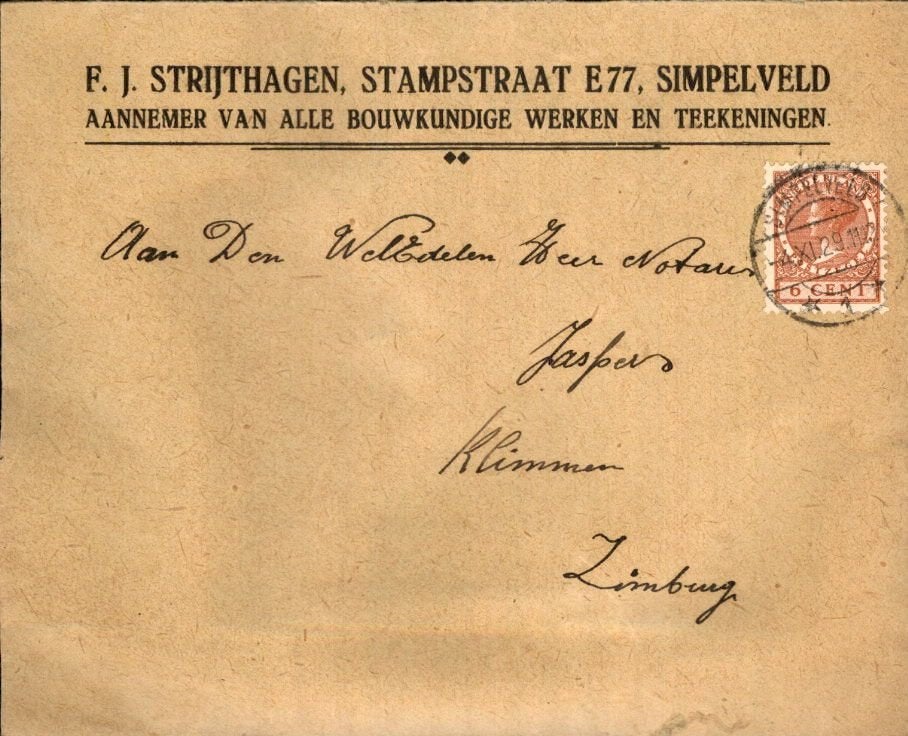 F. J. STRIJTHAGEN, STAMPSTRAAT E 77, SIMPELVELD
AANNEMER VAN ALLE BOUWKUNDIGE WERKEN EN TEEKENINGEN.
SIMPELVELD
4.XI.29.11
6 CENT
1
Aan Den WelEdelen Heer Notaris
Jaspers
Klimmen
Limburg